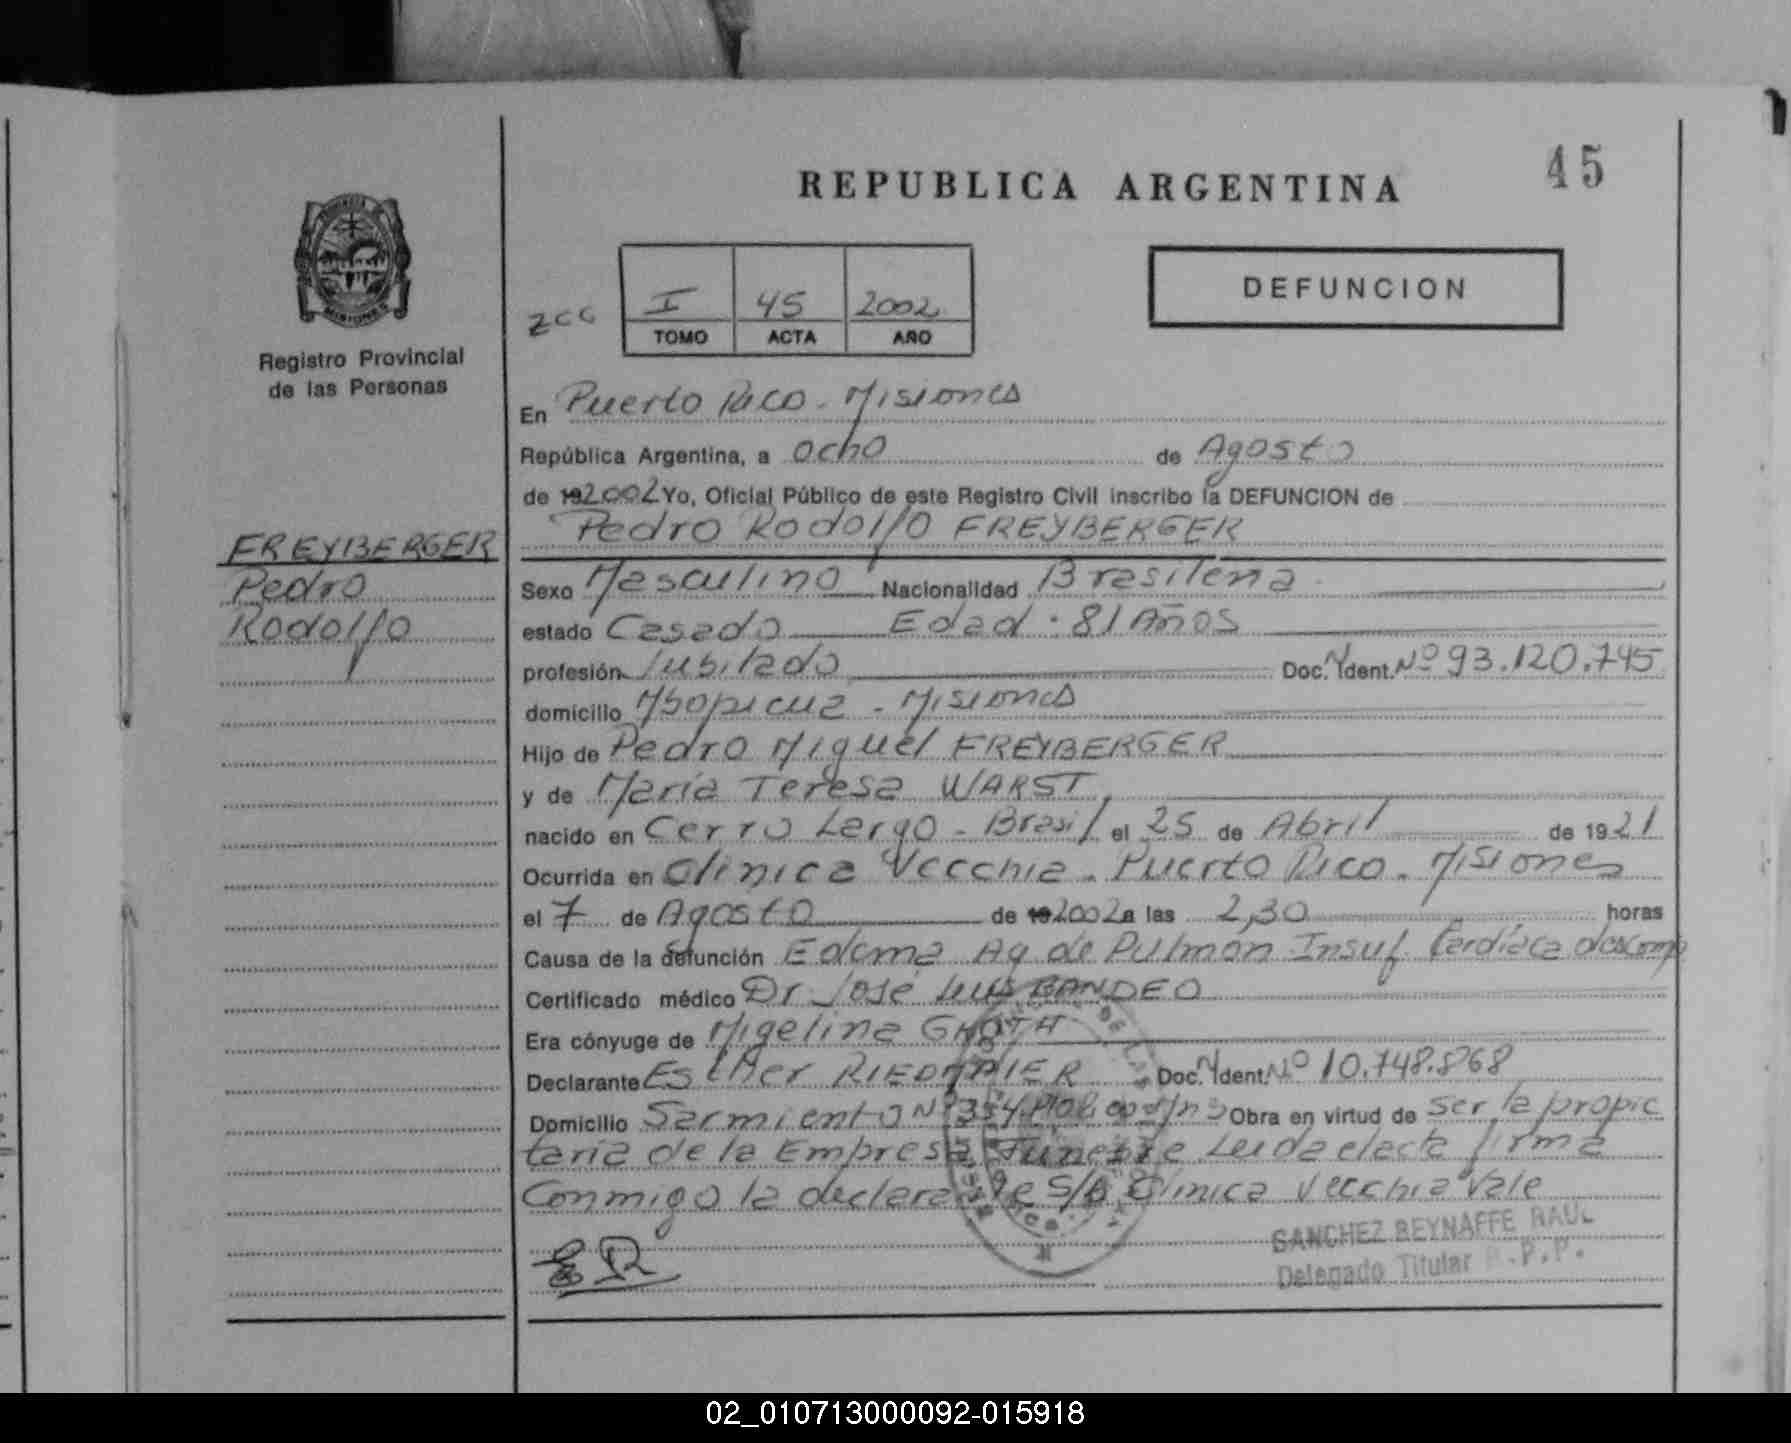 45
REPUBLICA ARGENTINA
DEFUNCION
PROVINCIA DE
MISIONES
Registro Provincial
de las Personas
I 45 2002
TOMO ACTA AÑO
En Puerto Rico - Misiones
República Argentina, a ocho de Agosto
de 192002 Yo, Oficial Público de este Registro Civil inscribo la DEFUNCION de
Pedro Rodolfo FREYBERGER
FREYBERGER
Pedro
Rodolfo
Sexo Masculino Nacionalidad Brasilena
estado Casado Edad - 81 Años
profesión Jubilado Doc. Ident. Nº 93.120.745
domicilio Mbopicua - Misiones
Hijo de Pedro Miguel FREYBERGER
y de María Teresa WARST
nacido en Cerro Largo - Brasil el 25 de Abril de 1921
Ocurrida en Clinica Vecchia - Puerto Rico - Misiones
el 7 de Agosto de 192002 a las 2,30 horas
Causa de la defunción Edema Ag de Pulmon Insuf. Cardíaca descomp
Certificado médico Dr José Luis BANDEO
Era cónyuge de Migelina GROTH
Declarante Esther Doc. Ident. Nº 10.748.868
Domicilio Sarmiento Nº 334 Obra en virtud de ser la propie
taria de la Empresa Funebre Leida el acta firma
Conmigo la declarante S/b Clinica Vecchia Vale
SANCHEZ BEYNAFFE RAUL
Delegado Titular R.P.P.
02_010713000092-015918